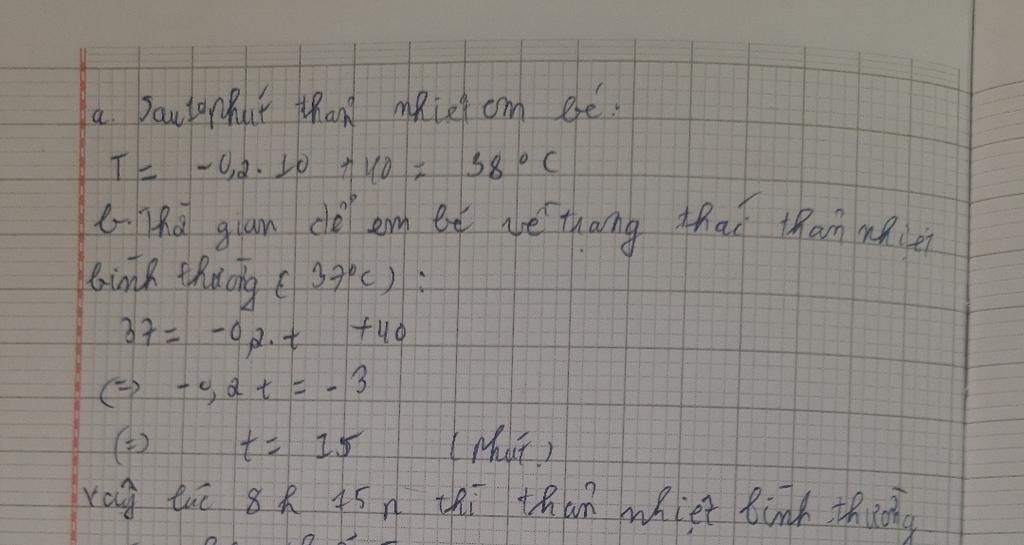 a. Sau 10 phút thân nhiệt em bé:
T = -0,2.10 +40 = 38°C
b. Thời gian để em bé về trạng thái thân nhiệt
bình thường (37°C) :
37 = -0,2.t +40
(=) -0,2t = -3
(=) t = 15 (phút)
vậy lúc 8h 15p thì thân nhiệt bình thường